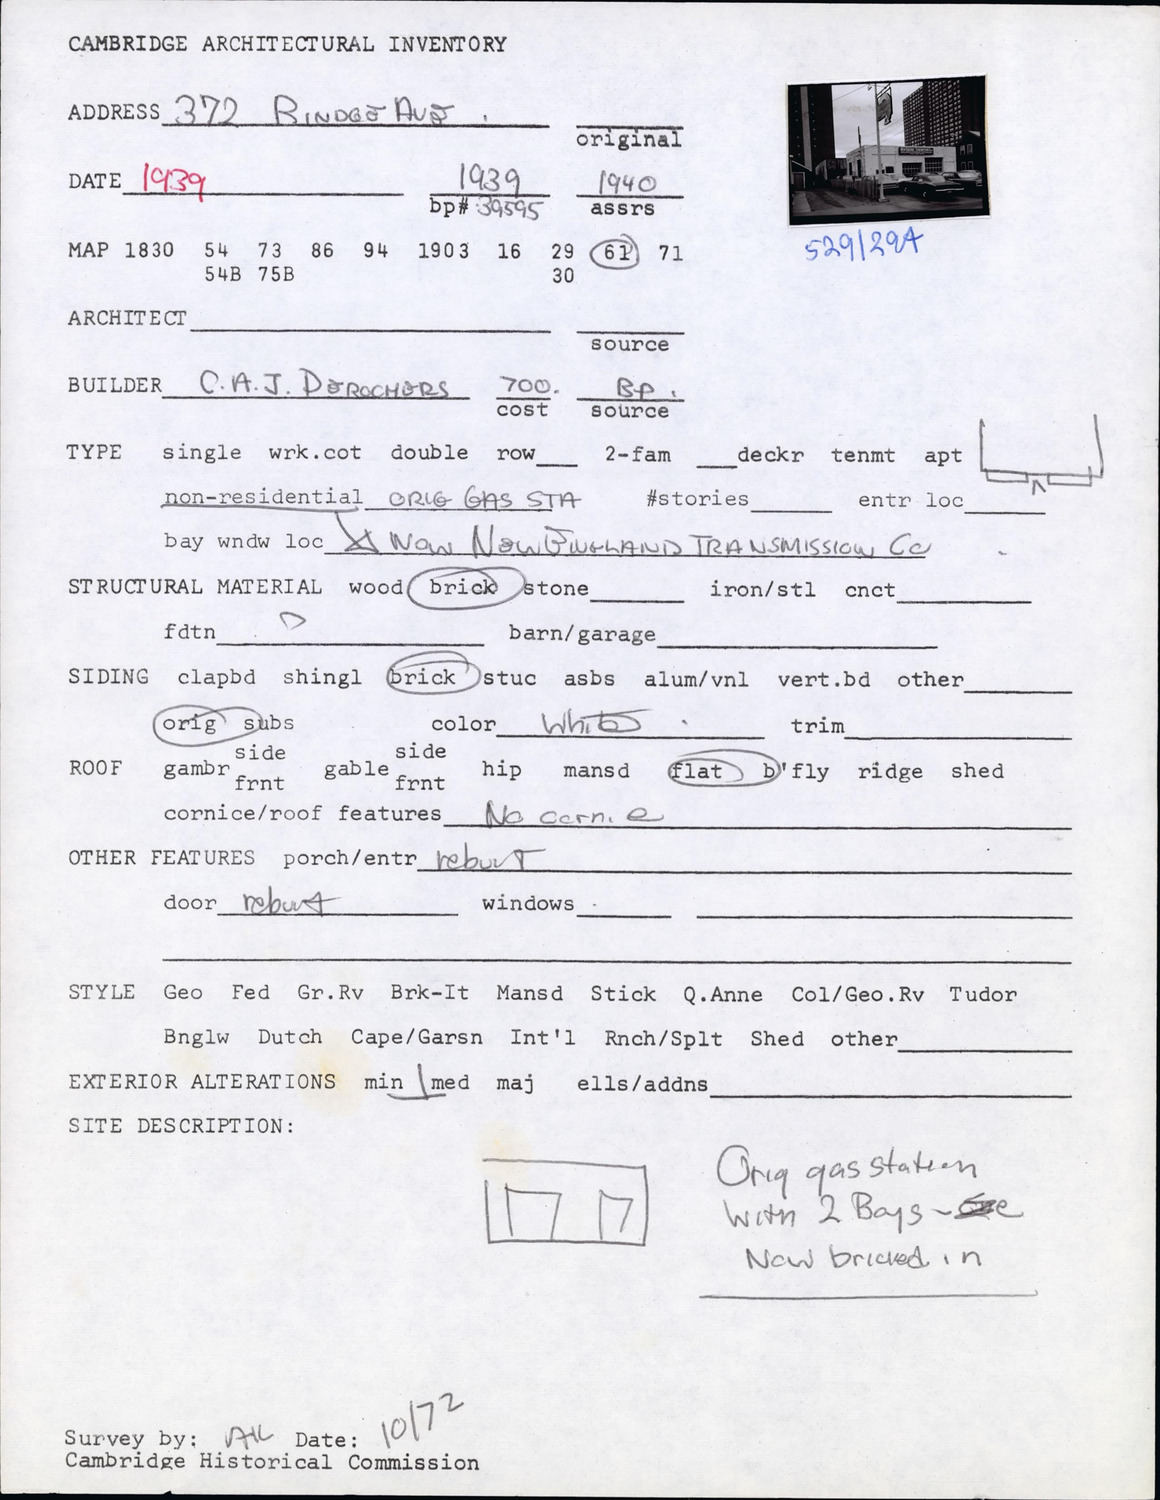 CAMBRIDGE ARCHITECTURAL INVENTORY
ADDRESS 372 RINDGE AVE.
original
DATE 1939 1939 1940
bp# 39595 assrs
529/29A
MAP 1830 54 73 86 94 1903 16 29 61 71
54B 75B 30
ARCHITECT
source
BUILDER C.A.J. DEROCHERS 700. BP.
cost source
TYPE single wrk.cot double row 2-fam deckr tenmt apt
non-residential ORIG GAS STA #stories entr loc
bay wndw loc NOW NEW ENGLAND TRANSMISSION CO
STRUCTURAL MATERIAL wood brick stone iron/stl cnct
fdtn barn/garage
SIDING clapbd shingl brick stuc asbs alum/vnl vert.bd other
orig subs color White trim
side side
ROOF gambr gable hip mansd flat b'fly ridge shed
frnt frnt
cornice/roof features No corn.e
OTHER FEATURES porch/entr rebuilt
door rebuilt windows
STYLE Geo Fed Gr.Rv Brk-It Mansd Stick Q.Anne Col/Geo.Rv Tudor
Bnglw Dutch Cape/Garsn Int'l Rnch/Splt Shed other
EXTERIOR ALTERATIONS min med maj ells/addns
SITE DESCRIPTION:
Orig gas station
with 2 Bays -
Now bricked in
Survey by: Date: 10/72
Cambridge Historical Commission